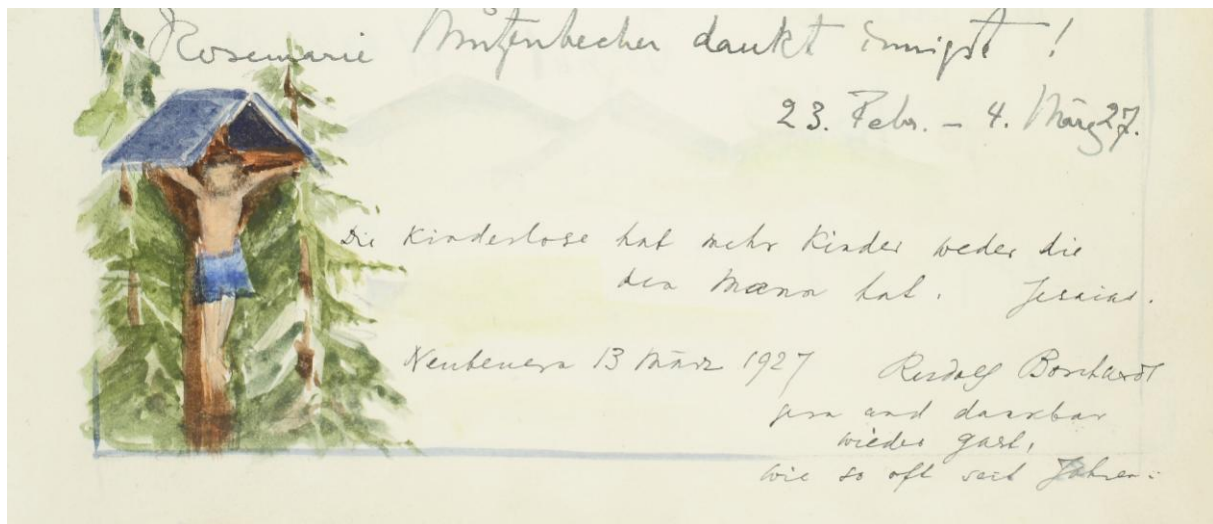 Rosemarie Mutzenbecher dankt innigst!
23. Febr. – 4. März 27.
Die Kinderlose hat mehr Kinder weder die
den Mann hat. Jesaias.
Neubeuern 13 März 1927 Rudolf Borchardt
gern und dankbar
wieder Gast,
wie so oft seit Jahren.